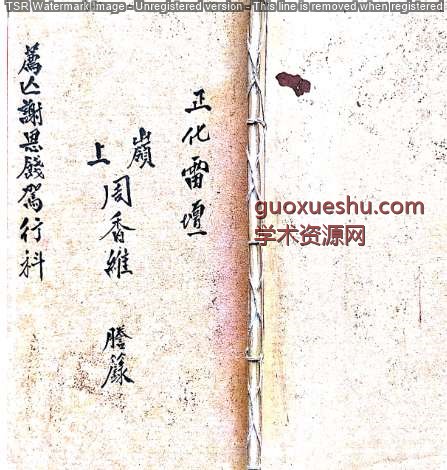 TSR Watermark Image - Unregistered version - This line is removed when registered
正化雷壇
嶺上周香維 謄籙
薦亡謝恩餞駕行科
guoxueshu.com
学术资源网